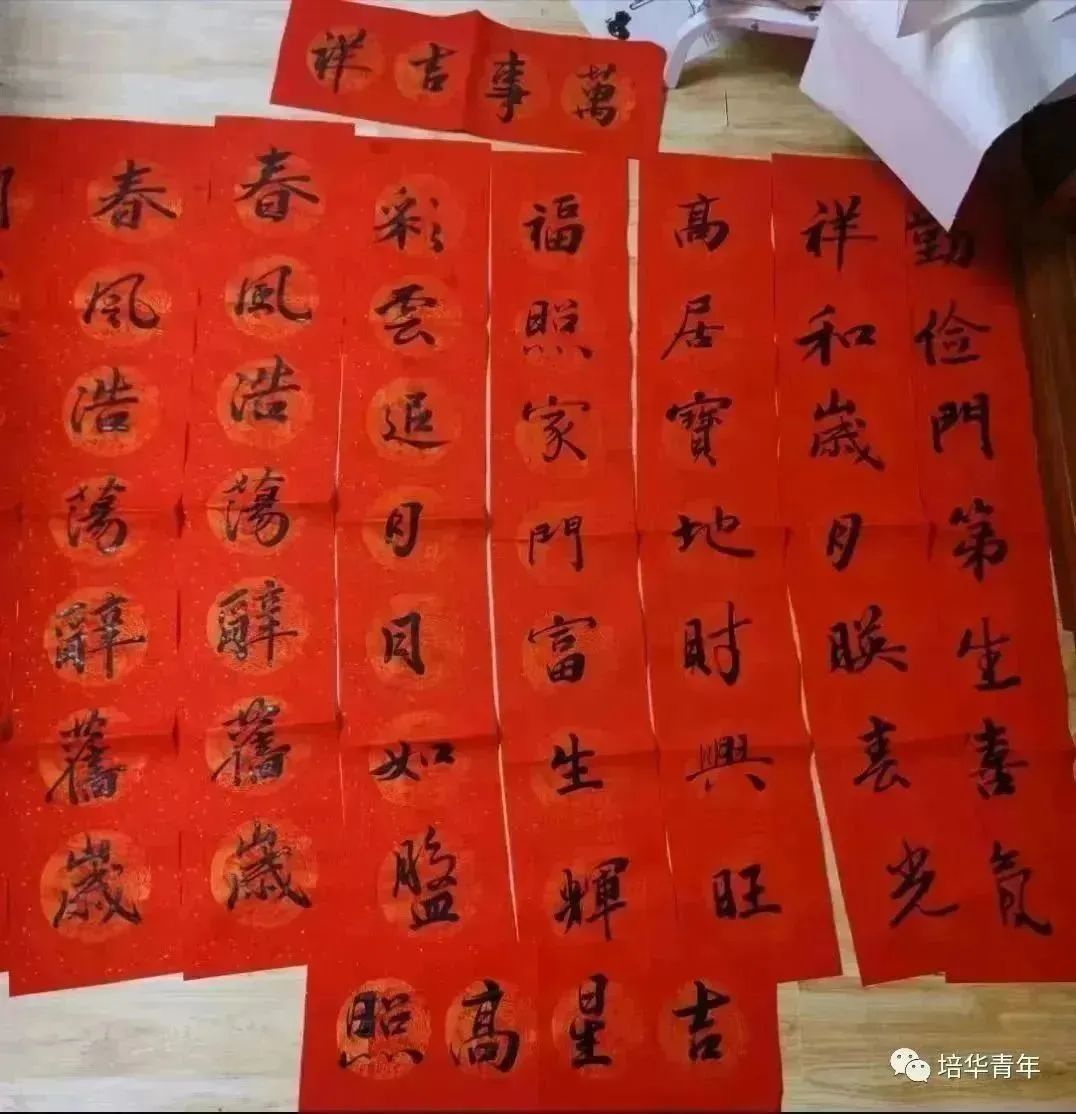 萬事吉祥
勤俭門第生喜氣
祥和歲月暎春光
高居寶地財興旺
福照家門富生輝
彩雲追月月如盤
春風浩蕩辭舊歲
春風浩蕩辭舊歲
吉星高照
培华青年